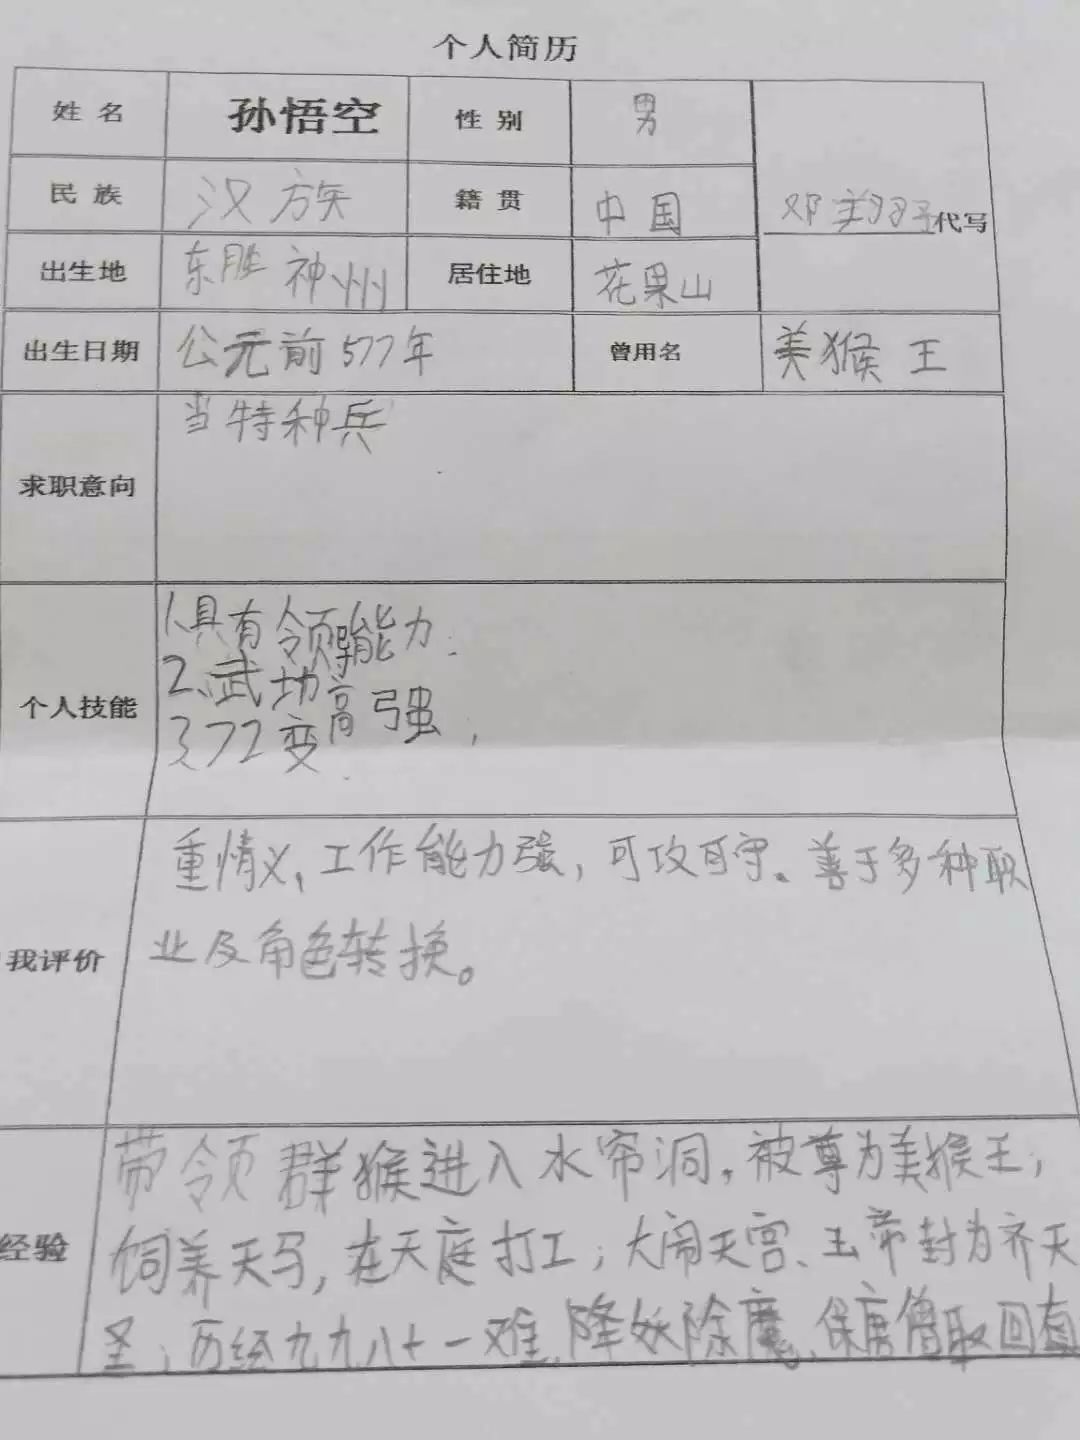 个人简历
姓名 孙悟空 性别 男
民族 汉族 籍贯 中国 代写
出生地 东胜神州 居住地 花果山
出生日期 公元前577年 曾用名 美猴王
求职意向 当特种兵
个人技能
1、具有领导能力.
2、武功高强,
3、72变
我评价
重情义,工作能力强,可攻可守。善于多种职
业及角色转换。
经验
带领群猴进入水帘洞,被尊为美猴王;
饲养天马,在天庭打工;大闹天宫、玉帝封为齐天
圣;历经九九八十一难、降妖除魔、保唐僧取回真